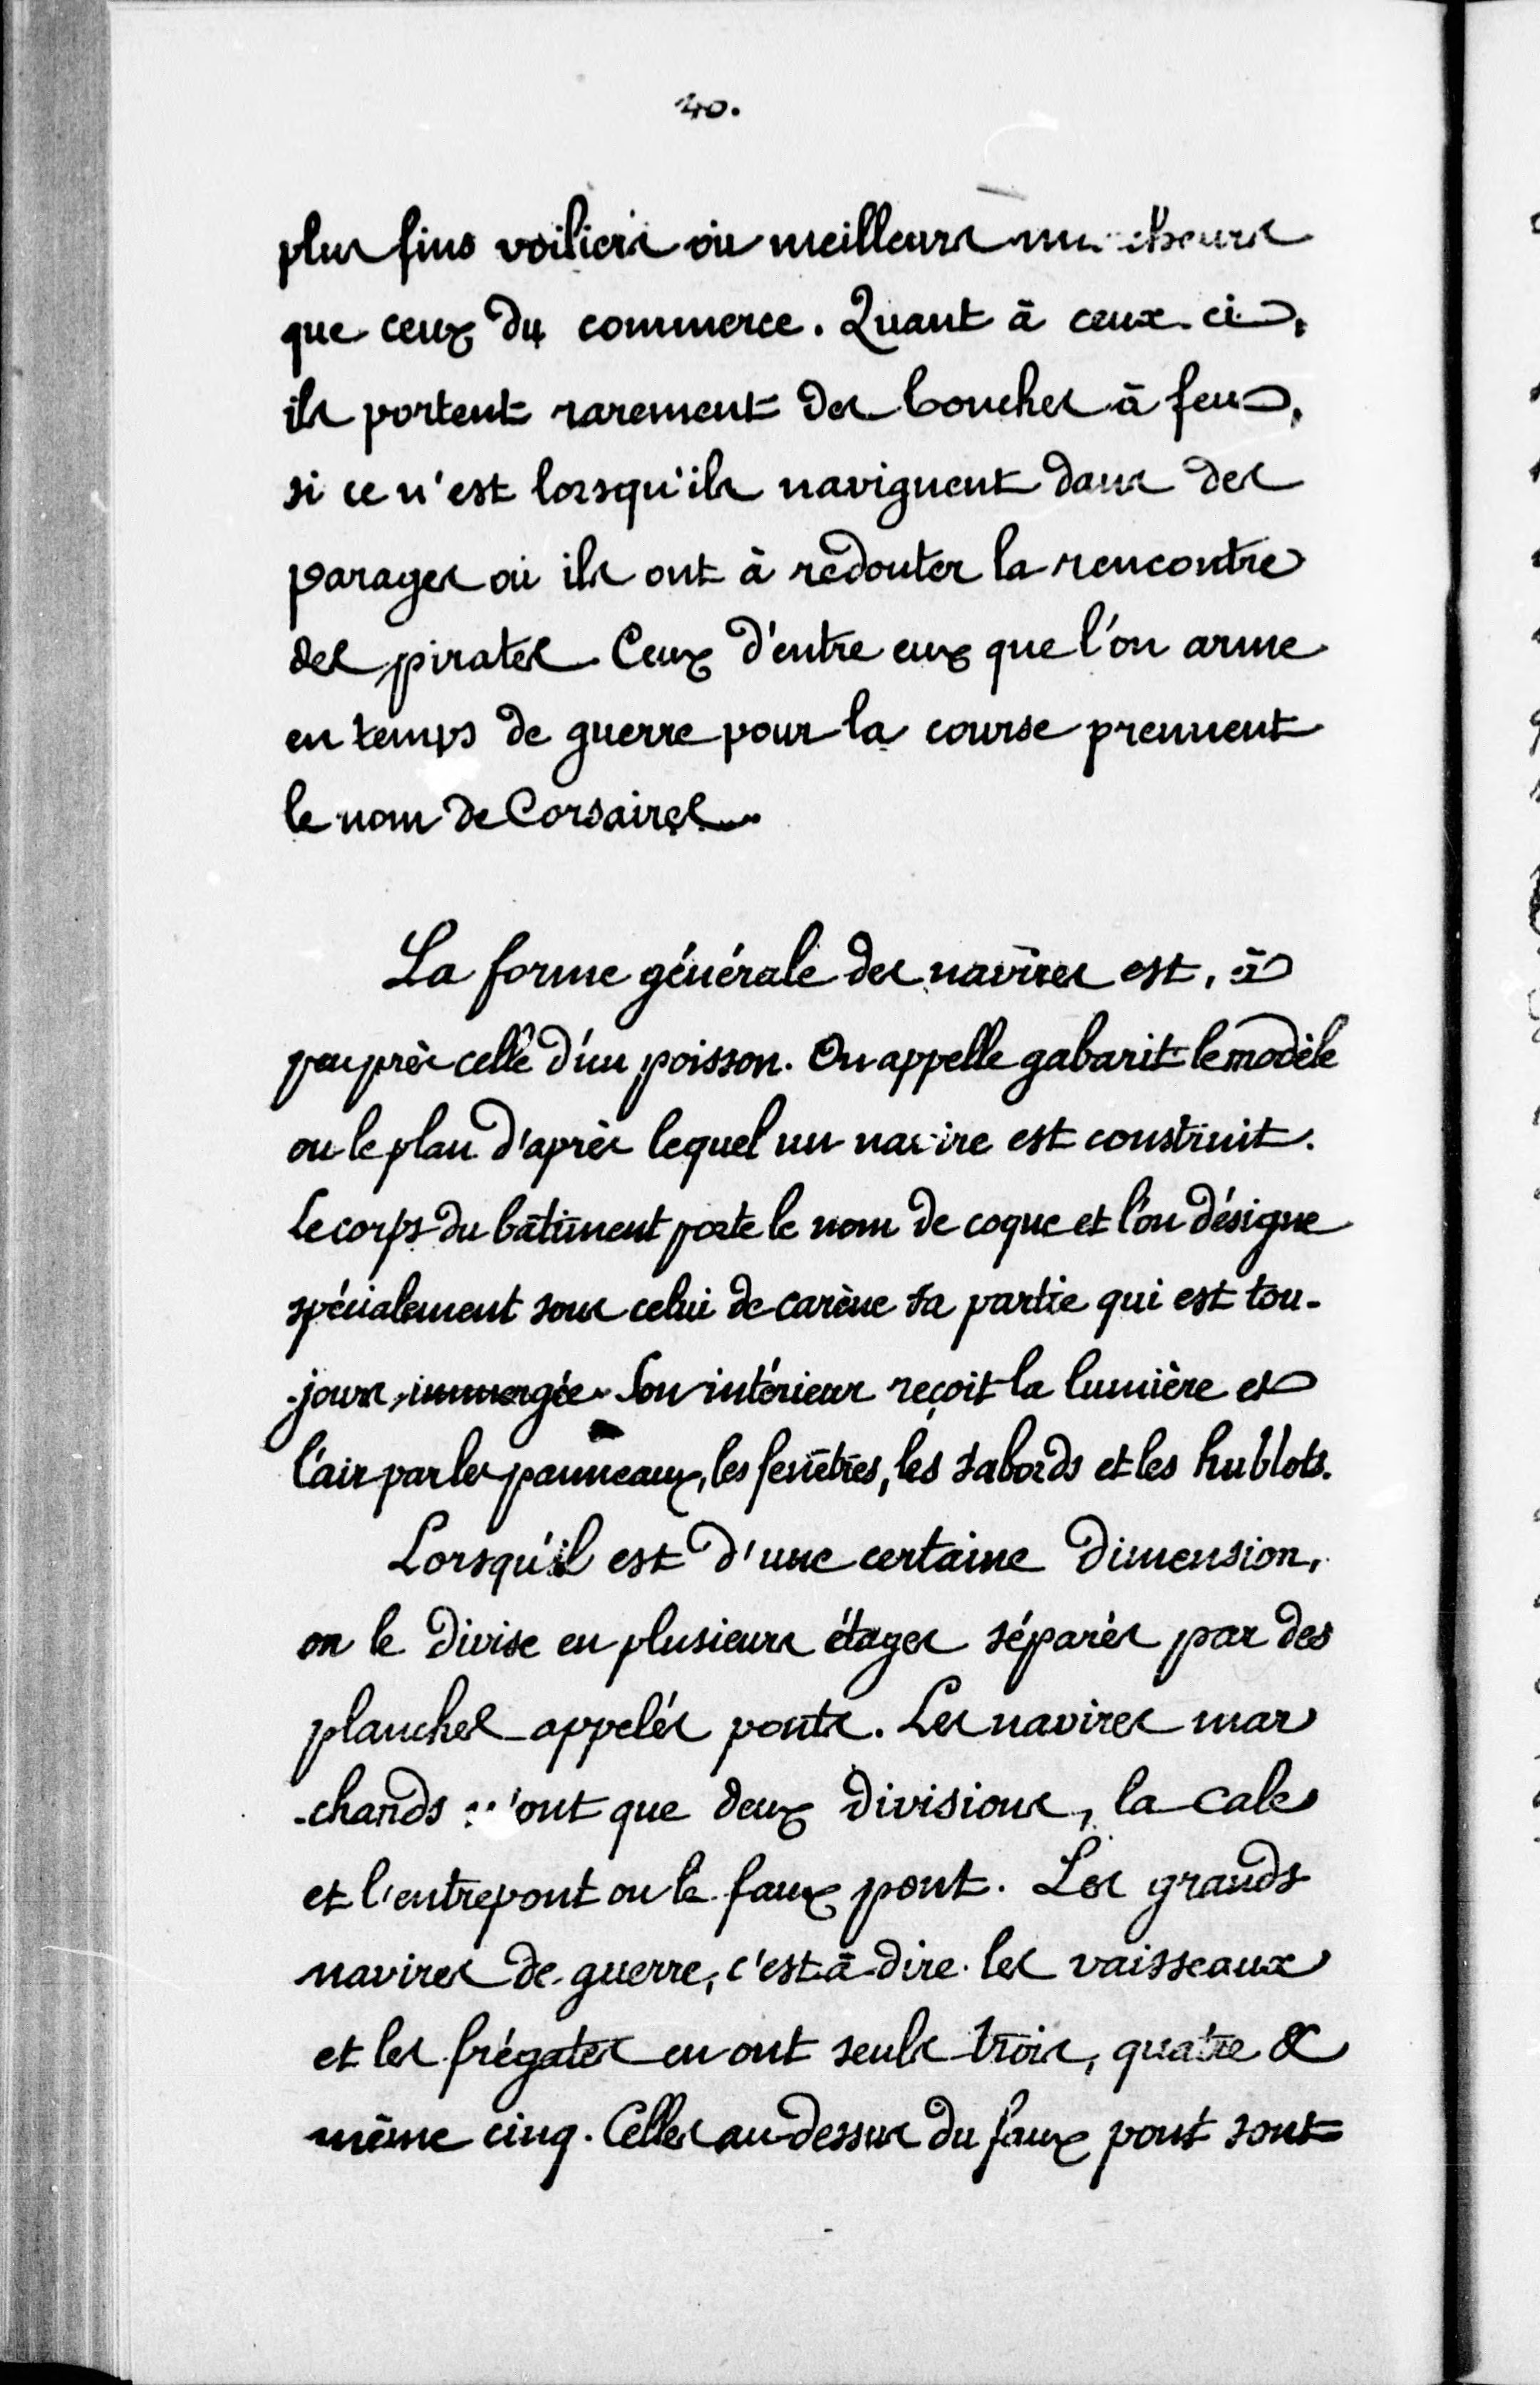 40.
plus fins voiliers ou meilleurs marcheurs
que ceux du commerce. Quant à ceux-ci,
ils portent rarement des bouches à feu,
si ce n'est lorsqu'ils naviguent dans des
parages où ils ont à redouter la rencontre
des pirates. Ceux d'entre eux que l'on arme
en temps de guerre pour la course prennent
le nom de Corsaires.
La forme générale des navires est, à
peu près celle d'un poisson. On appelle gabarit le modèle
ou le plan d'après lequel un navire est construit.
Le corps du bâtiment porte le nom de coque et l'on désigne
spécialement sous celui de carène sa partie qui est tou-
-jours immergée. Son intérieur reçoit la lumière et
l'air par les panneaux, les fenêtres, les sabords et les hublots.
Lorsqu'il est d'une certaine dimension,
on le divise en plusieurs étages séparés par des
planches appelés ponts. Les navires mar
-chands n'ont que deux divisions, la cale
et l'entrepont ou le faux pont. Les grands
navires de guerre, c'est-à-dire les vaisseaux
et les frégates en ont seuls trois, quatre &
même cinq. Celles au-dessus du faux pont sont